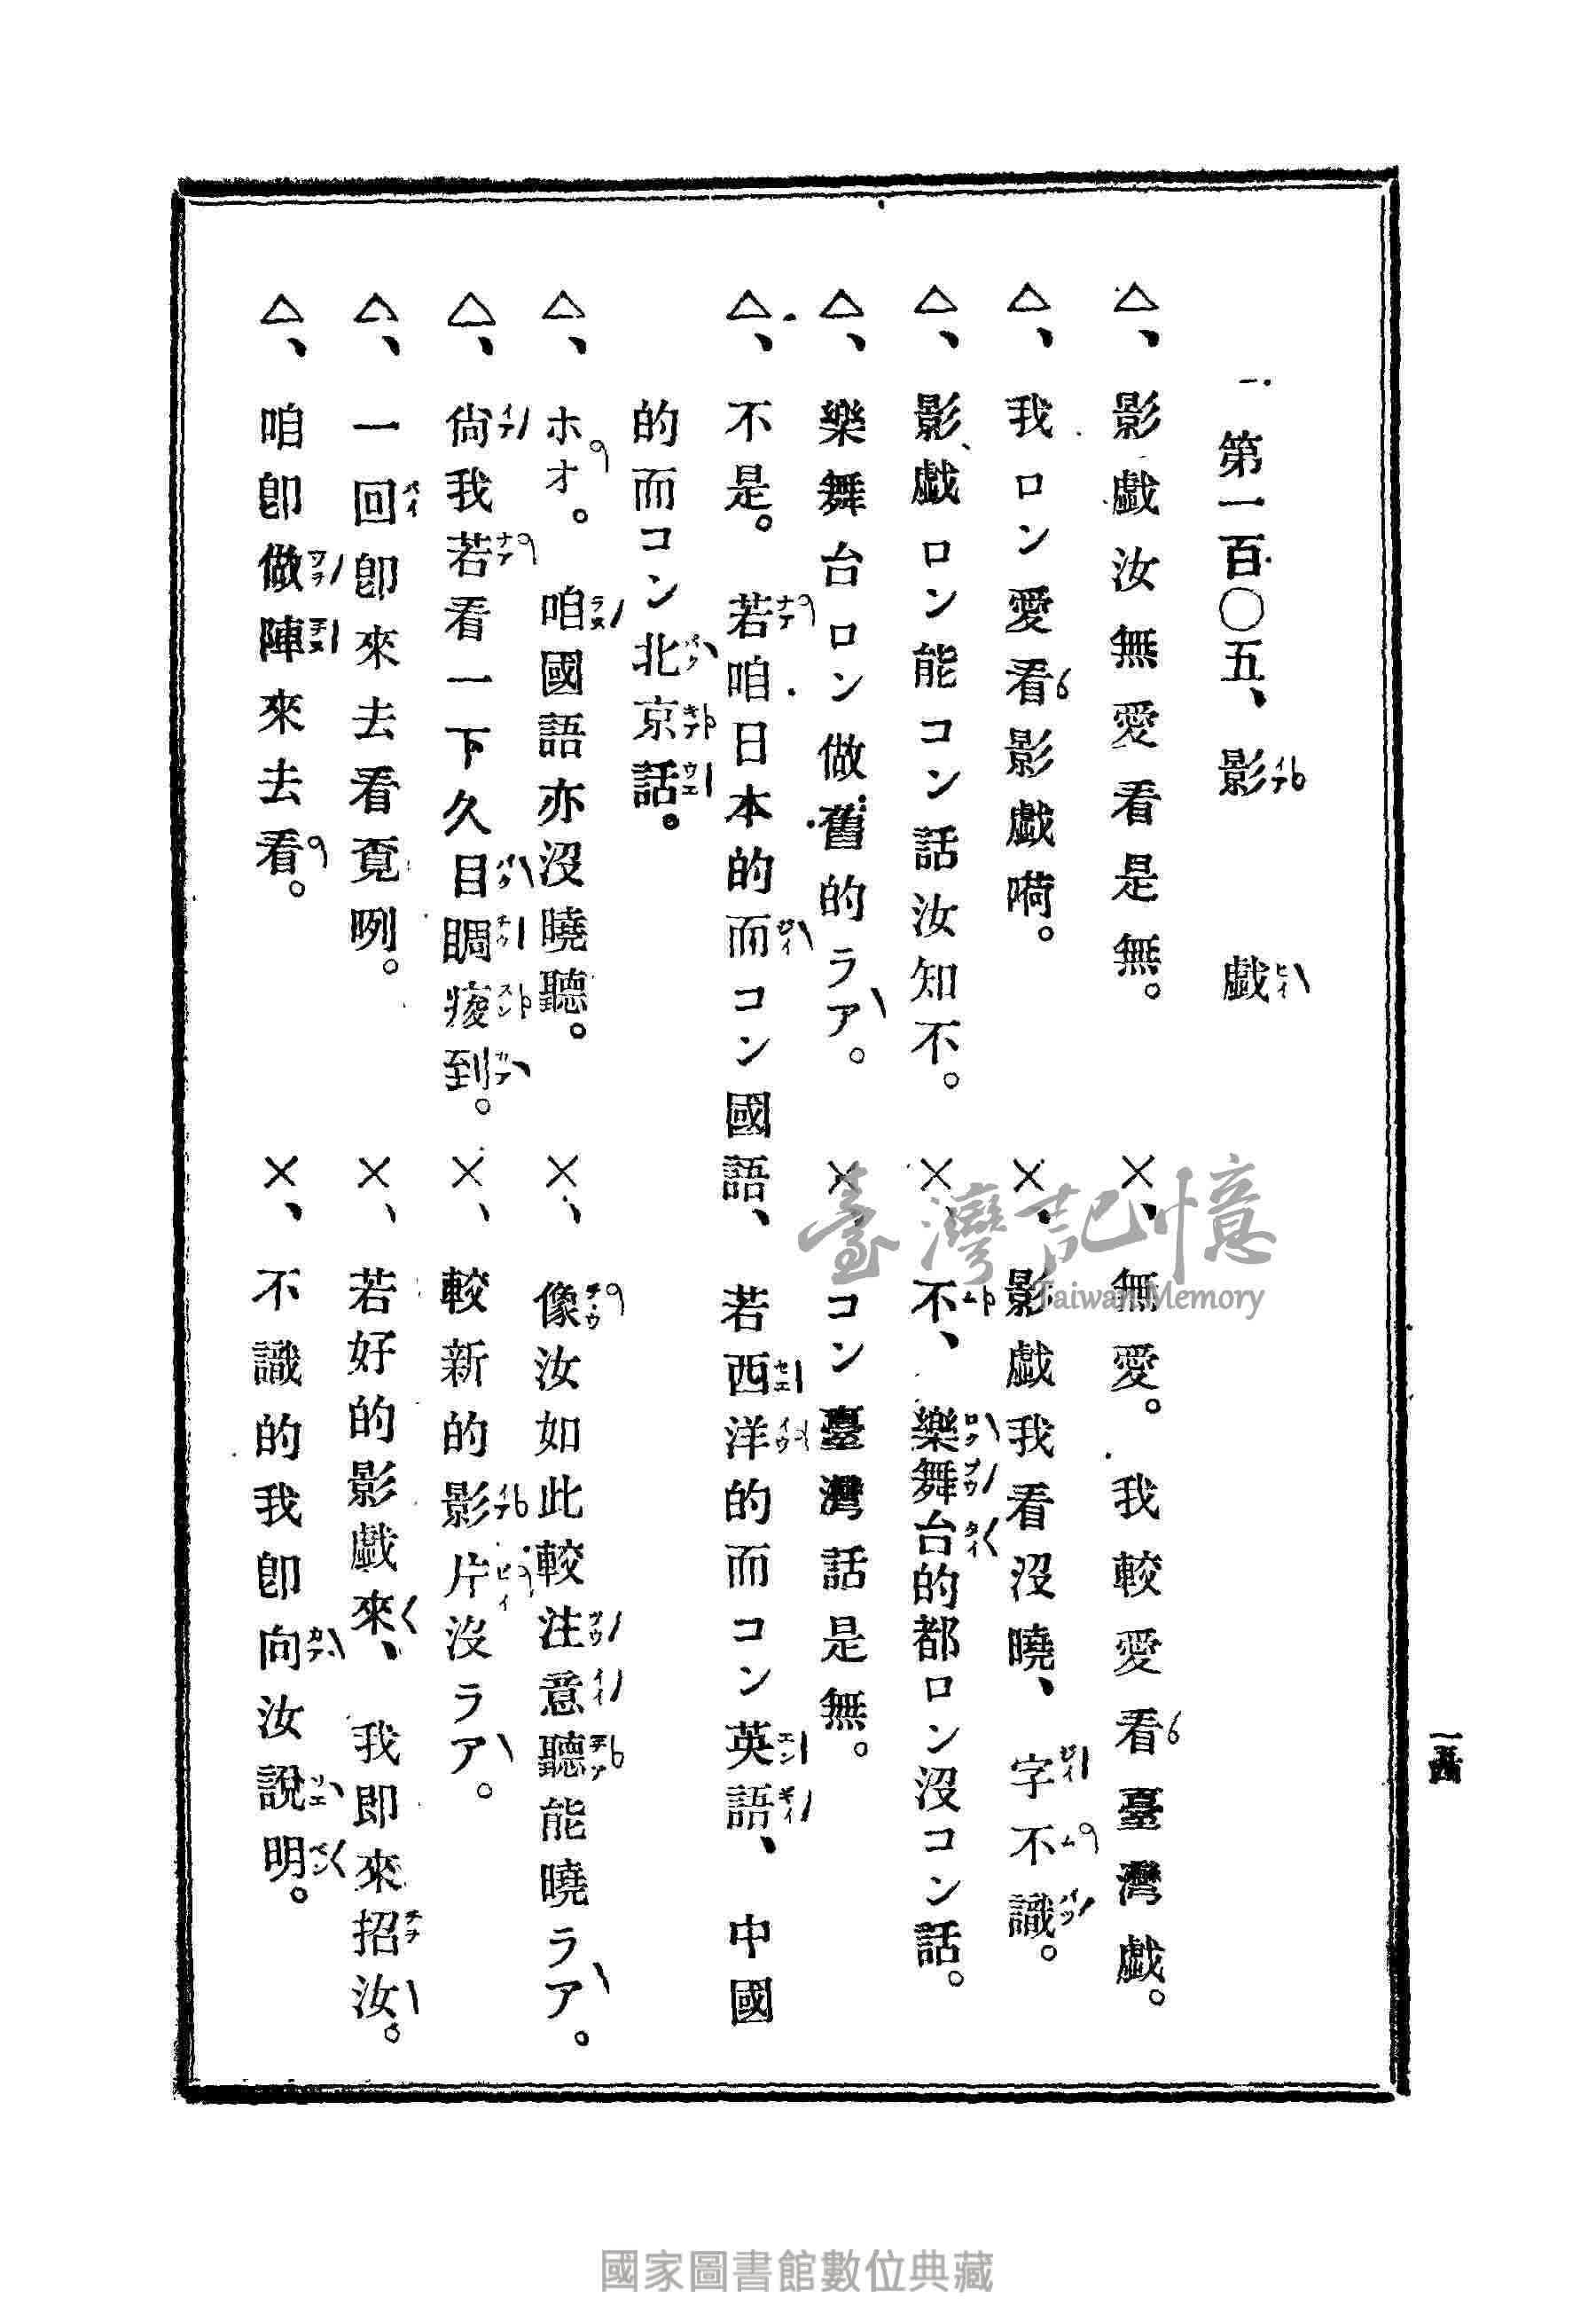 第一百〇五、影戲
△、影戲汝無愛看是無。 ×、無愛。我較愛看臺灣戲。
△、我ロン愛看影戲嗬。 ×、影戲我看沒曉、字不識。
△、影戲ロン能コン話汝知不。 ×、不、樂舞台的都ロン沒コン話。
△、樂舞台ロン做舊的ラア。 ×、コン臺灣話是無。
△、不是。若咱日本的而コン國語、若西洋的而コン英語、中國
的而コン北京話。
△、ホオ。咱國語亦沒曉聽。 ×、像汝如此較注意聽能曉ラア。
△、尙我若看一下久目睭痠到。 ×、較新的影片沒ラア。
△、一回卽來去看覔咧。 ×、若好的影戲來、我卽來招汝。
△、咱卽做陣來去看。 ×、不識的我卽向汝說明。
臺灣記憶
Taiwan Memory
國家圖書館數位典藏